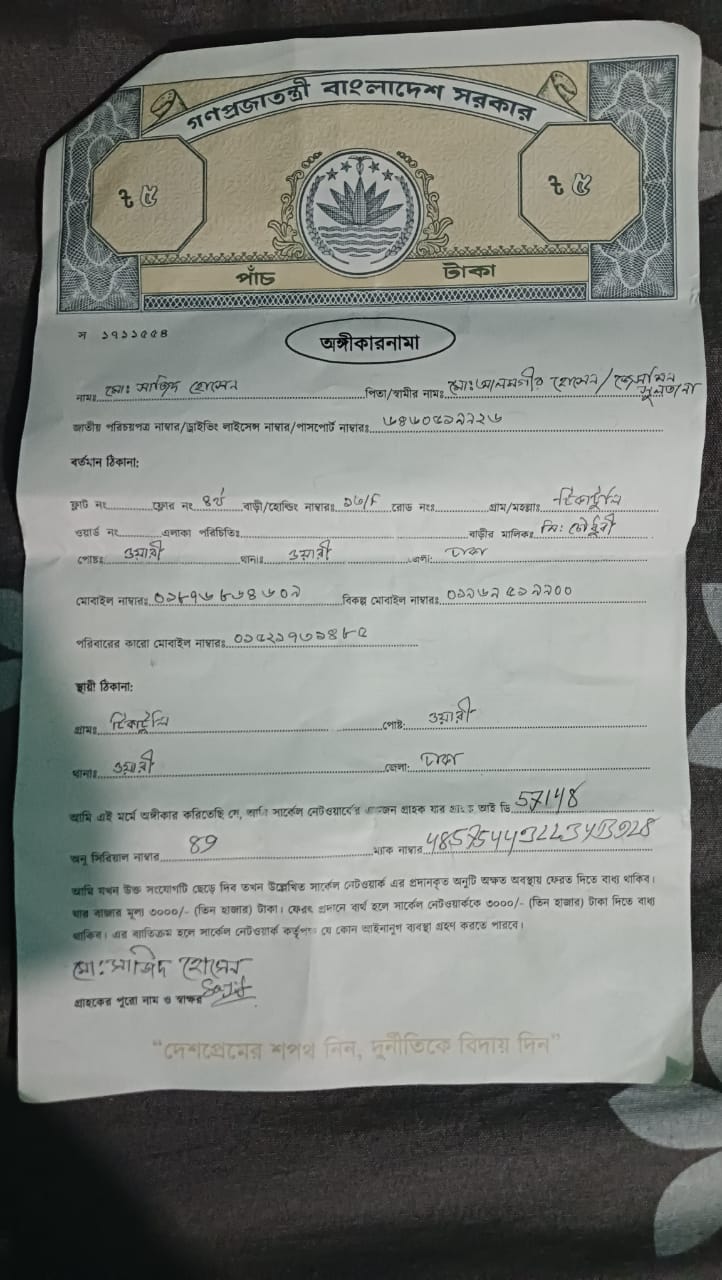 গণপ্রজাতন্ত্রী বাংলাদেশ সরকার
৳ ৫ ৳ ৫
পাঁচ টাকা
স ১৭১১৫৫৪
অঙ্গীকারনামা
নামঃ মোঃ সাজিদ হোসেন পিতা/স্বামীর নামঃ মোঃ আলমগীর হোসেন / সুলতানা
জাতীয় পরিচয়পত্র নাম্বার/ড্রাইভিং লাইসেন্স নাম্বার/পাসপোর্ট নাম্বারঃ
বর্তমান ঠিকানা:
ফ্লাট নং ফ্লোর নং ৪র্থ বাড়ী/হোল্ডিং নাম্বারঃ ১৬/৮ রোড নংঃ গ্রাম/মহল্লাঃ টিকাটুলি
ওয়ার্ড নং এলাকা পরিচিতিঃ বাড়ীর মালিকঃ মি: চৌধুরী
পোষ্টঃ ওয়ারী থানাঃ ওয়ারী জেলা: ঢাকা
মোবাইল নাম্বারঃ বিকল্প মোবাইল নাম্বারঃ
পরিবারের কারো মোবাইল নাম্বারঃ
স্থায়ী ঠিকানা:
গ্রামঃ টিকাটুলি পোষ্ট: ওয়ারী
থানাঃ ওয়ারী জেলা: ঢাকা
আমি এই মর্মে অঙ্গীকার করিতেছি যে, আমি সার্কেল নেটওয়ার্কের একজন গ্রাহক যার গ্রাহক আই ডি 57148
অনু সিরিয়াল নাম্বার 89 ম্যাক নাম্বার
আমি যখন উক্ত সংযোগটি ছেড়ে দিব তখন উল্লেখিত সার্কেল নেটওয়ার্ক এর প্রদানকৃত অনুটি অক্ষত অবস্থায় ফেরত দিতে বাধ্য থাকিব।
যার বাজার মূল্য ৩০০০/- (তিন হাজার) টাকা। ফেরৎ প্রদানে ব্যর্থ হলে সার্কেল নেটওয়ার্ককে ৩০০০/- (তিন হাজার) টাকা দিতে বাধ্য
থাকিব। এর ব্যতিক্রম হলে সার্কেল নেটওয়ার্ক কর্তৃপক্ষ যে কোন আইনানুগ ব্যবস্থা গ্রহণ করতে পারবে।
মোঃ সাজিদ হোসেন
গ্রাহকের পুরো নাম ও স্বাক্ষর Sajid
“দেশপ্রেমের শপথ নিন, দুর্নীতিকে বিদায় দিন”